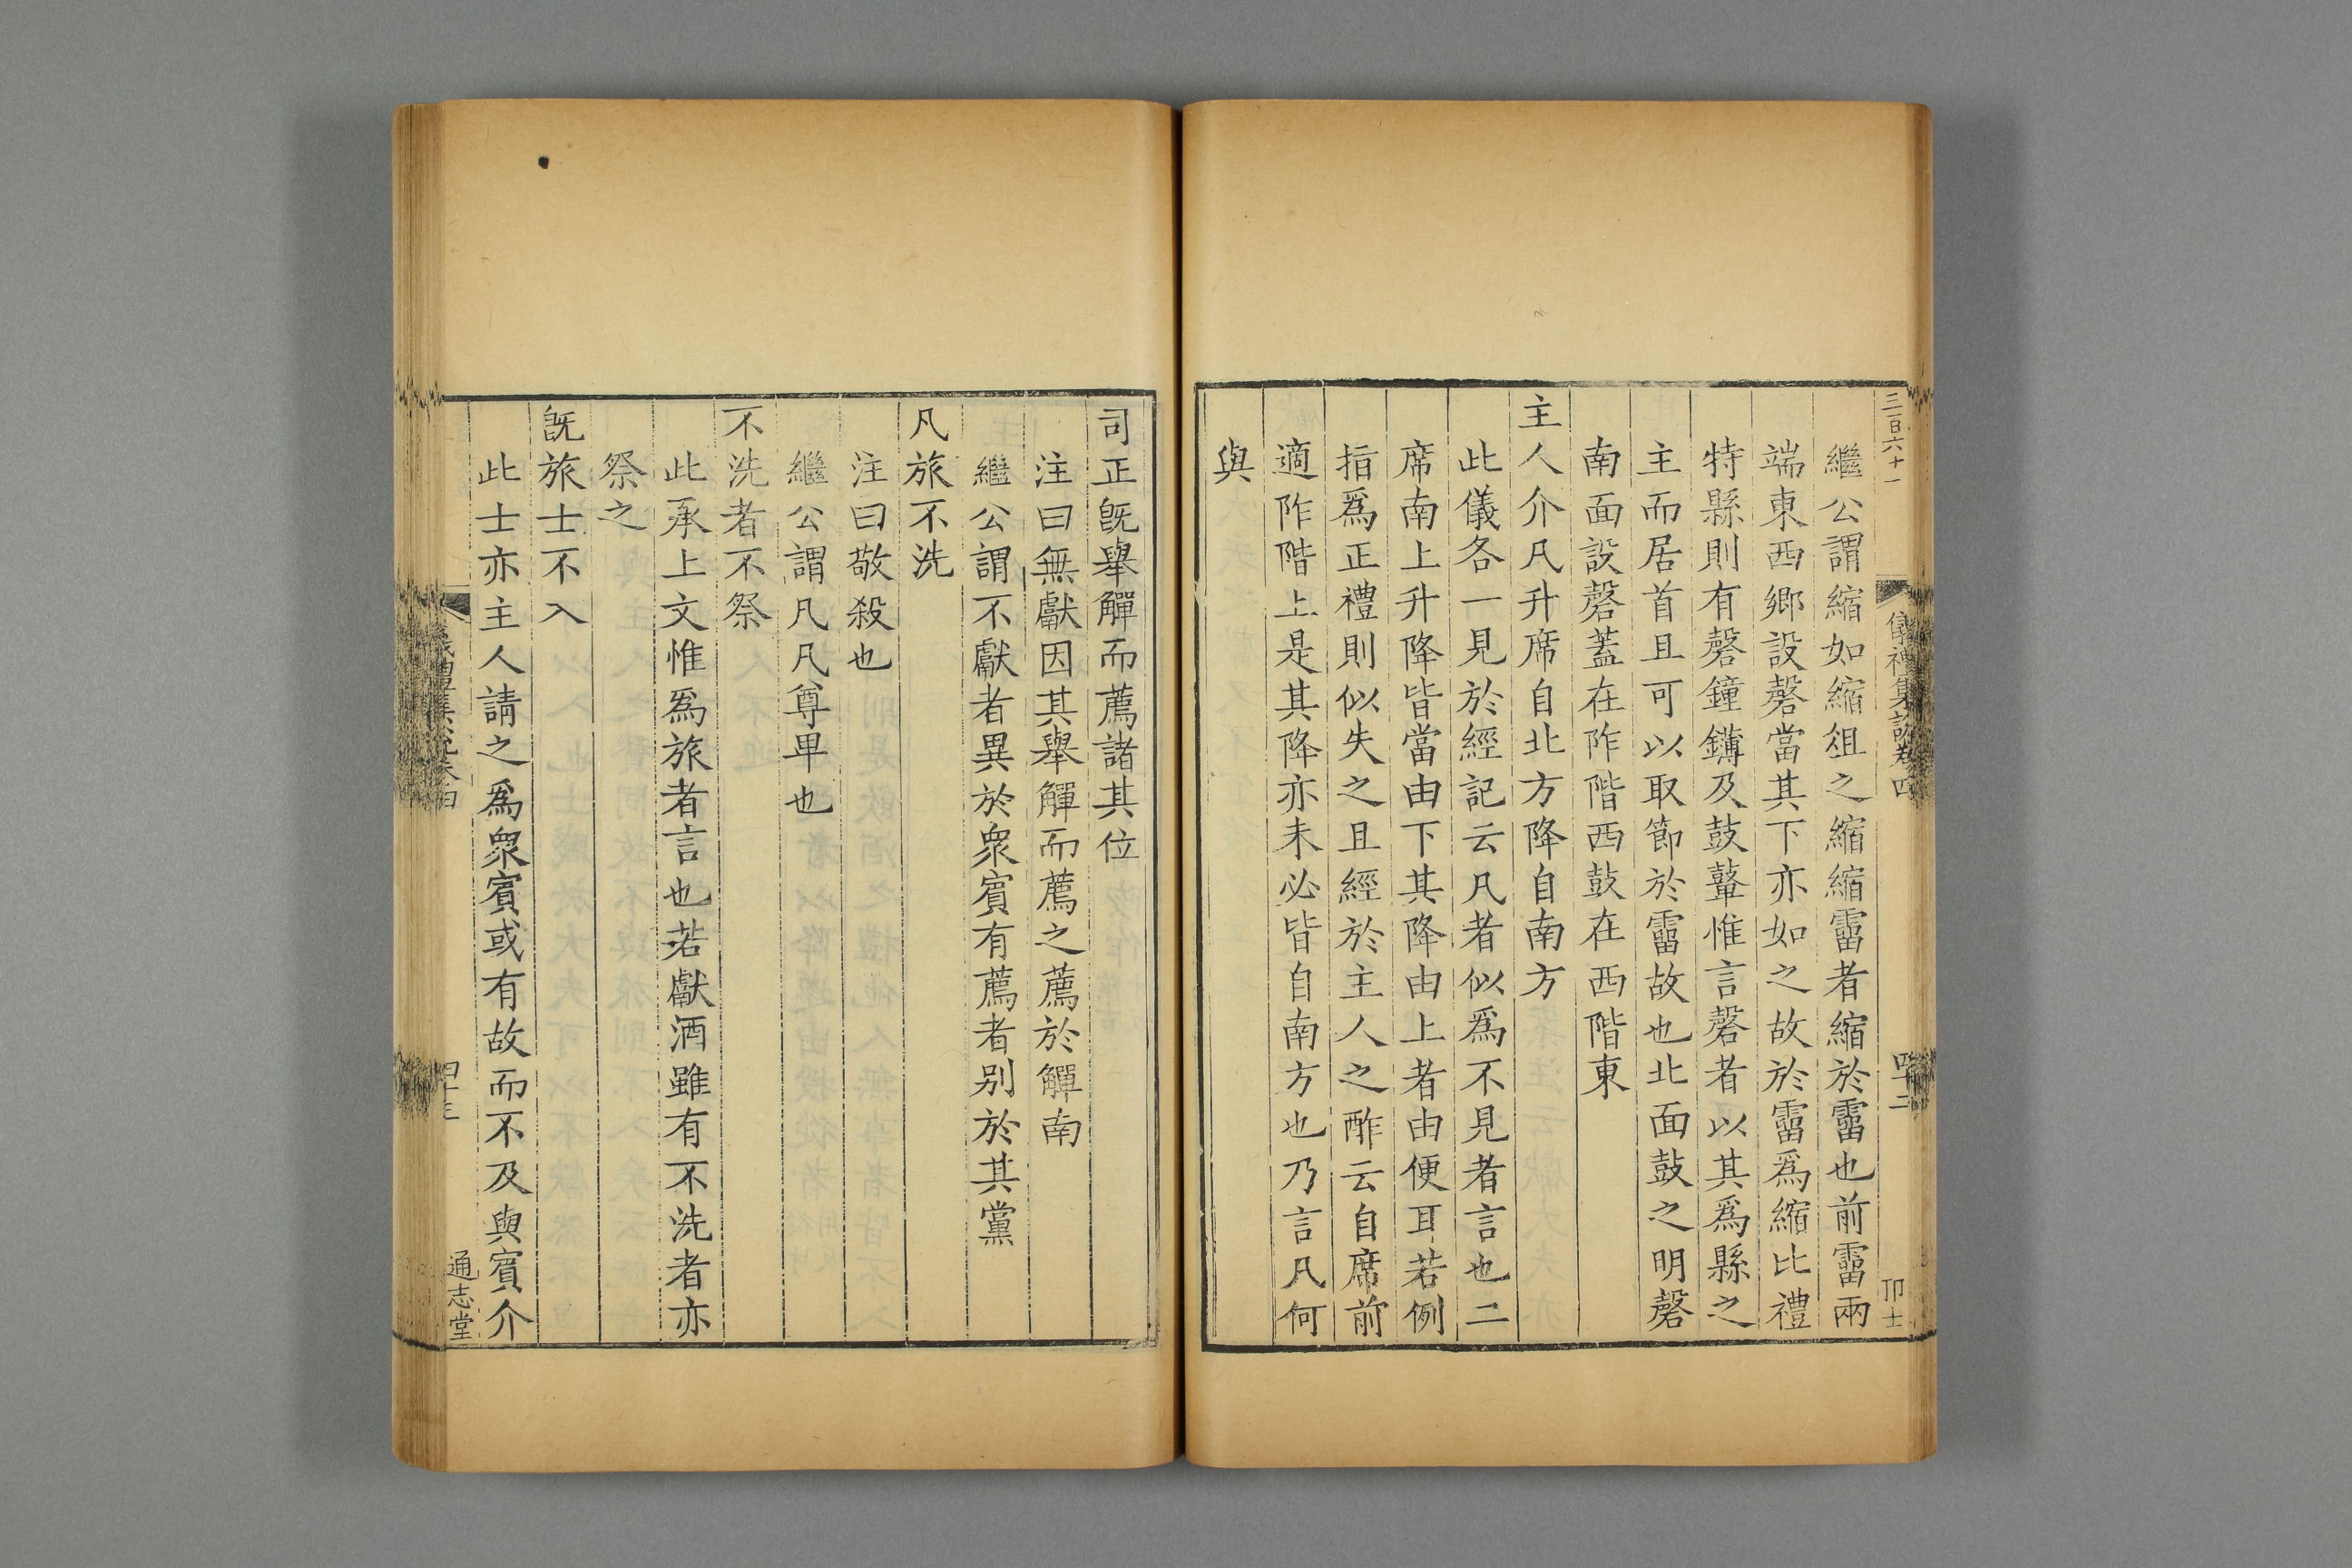 三百六十一
儀禮集說卷四
四十二
卬士
繼公謂縮如縮俎之縮縮霤者縮於霤也前霤兩
端東西鄉設磬當其下亦如之故於霤爲縮比禮
特縣則有磬鐘鑮及鼓鼙惟言磬者以其爲縣之
主而居首且可以取節於霤故也北面鼓之明磬
南面設磬蓋在阼階西鼓在西階東
主人介凡升席自北方降自南方
此儀各一見於經記云凡者似爲不見者言也二
席南上升降皆當由下其降由上者由便耳若例
指爲正禮則似失之且經於主人之酢云自席前
適阼階上是其降亦未必皆自南方也乃言凡何
與
司正旣舉觶而薦諸其位
注曰無獻因其舉觶而薦之薦於觶南
繼公謂不獻者異於衆賓有薦者别於其黨
凡旅不洗
注曰敬殺也
繼公謂凡凡尊卑也
不洗者不祭
此承上文惟爲旅者言也若獻酒雖有不洗者亦
祭之
旣旅士不入
此士亦主人請之爲衆賓或有故而不及與賓介
四十三
通志堂